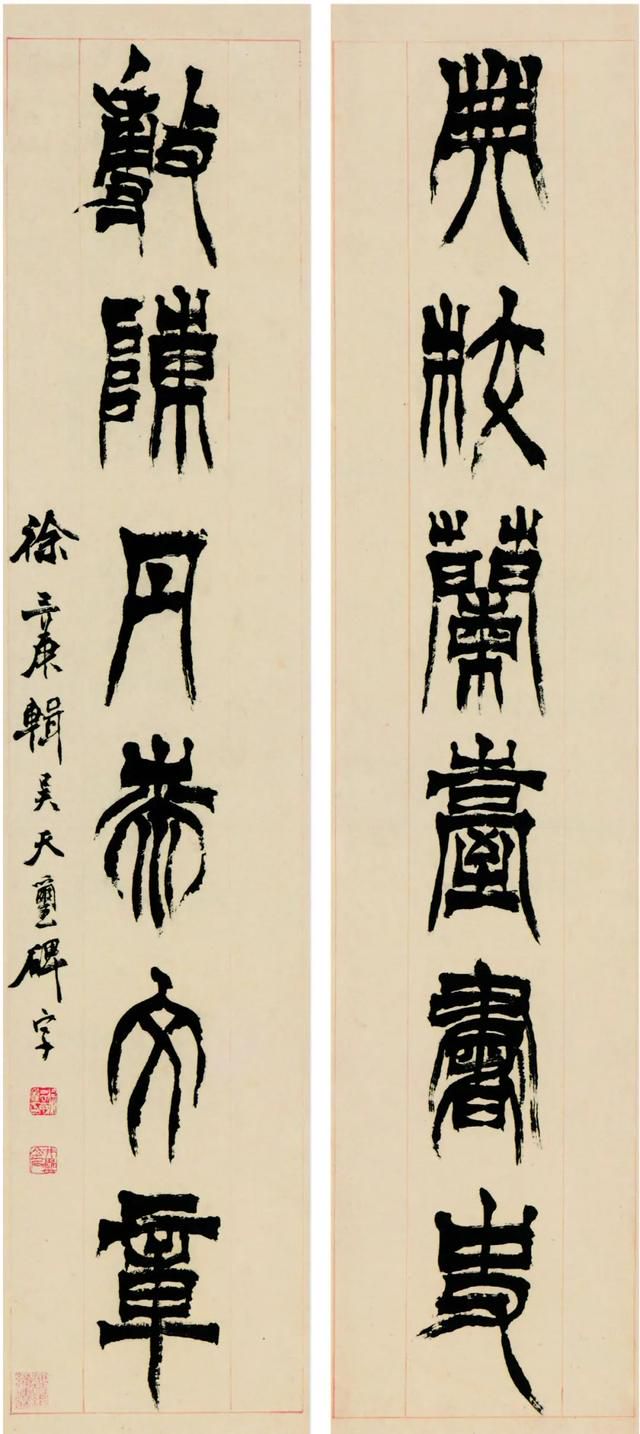 典校蘭臺書史
敷陳丹文章
徐三庚輯吳天璽碑字